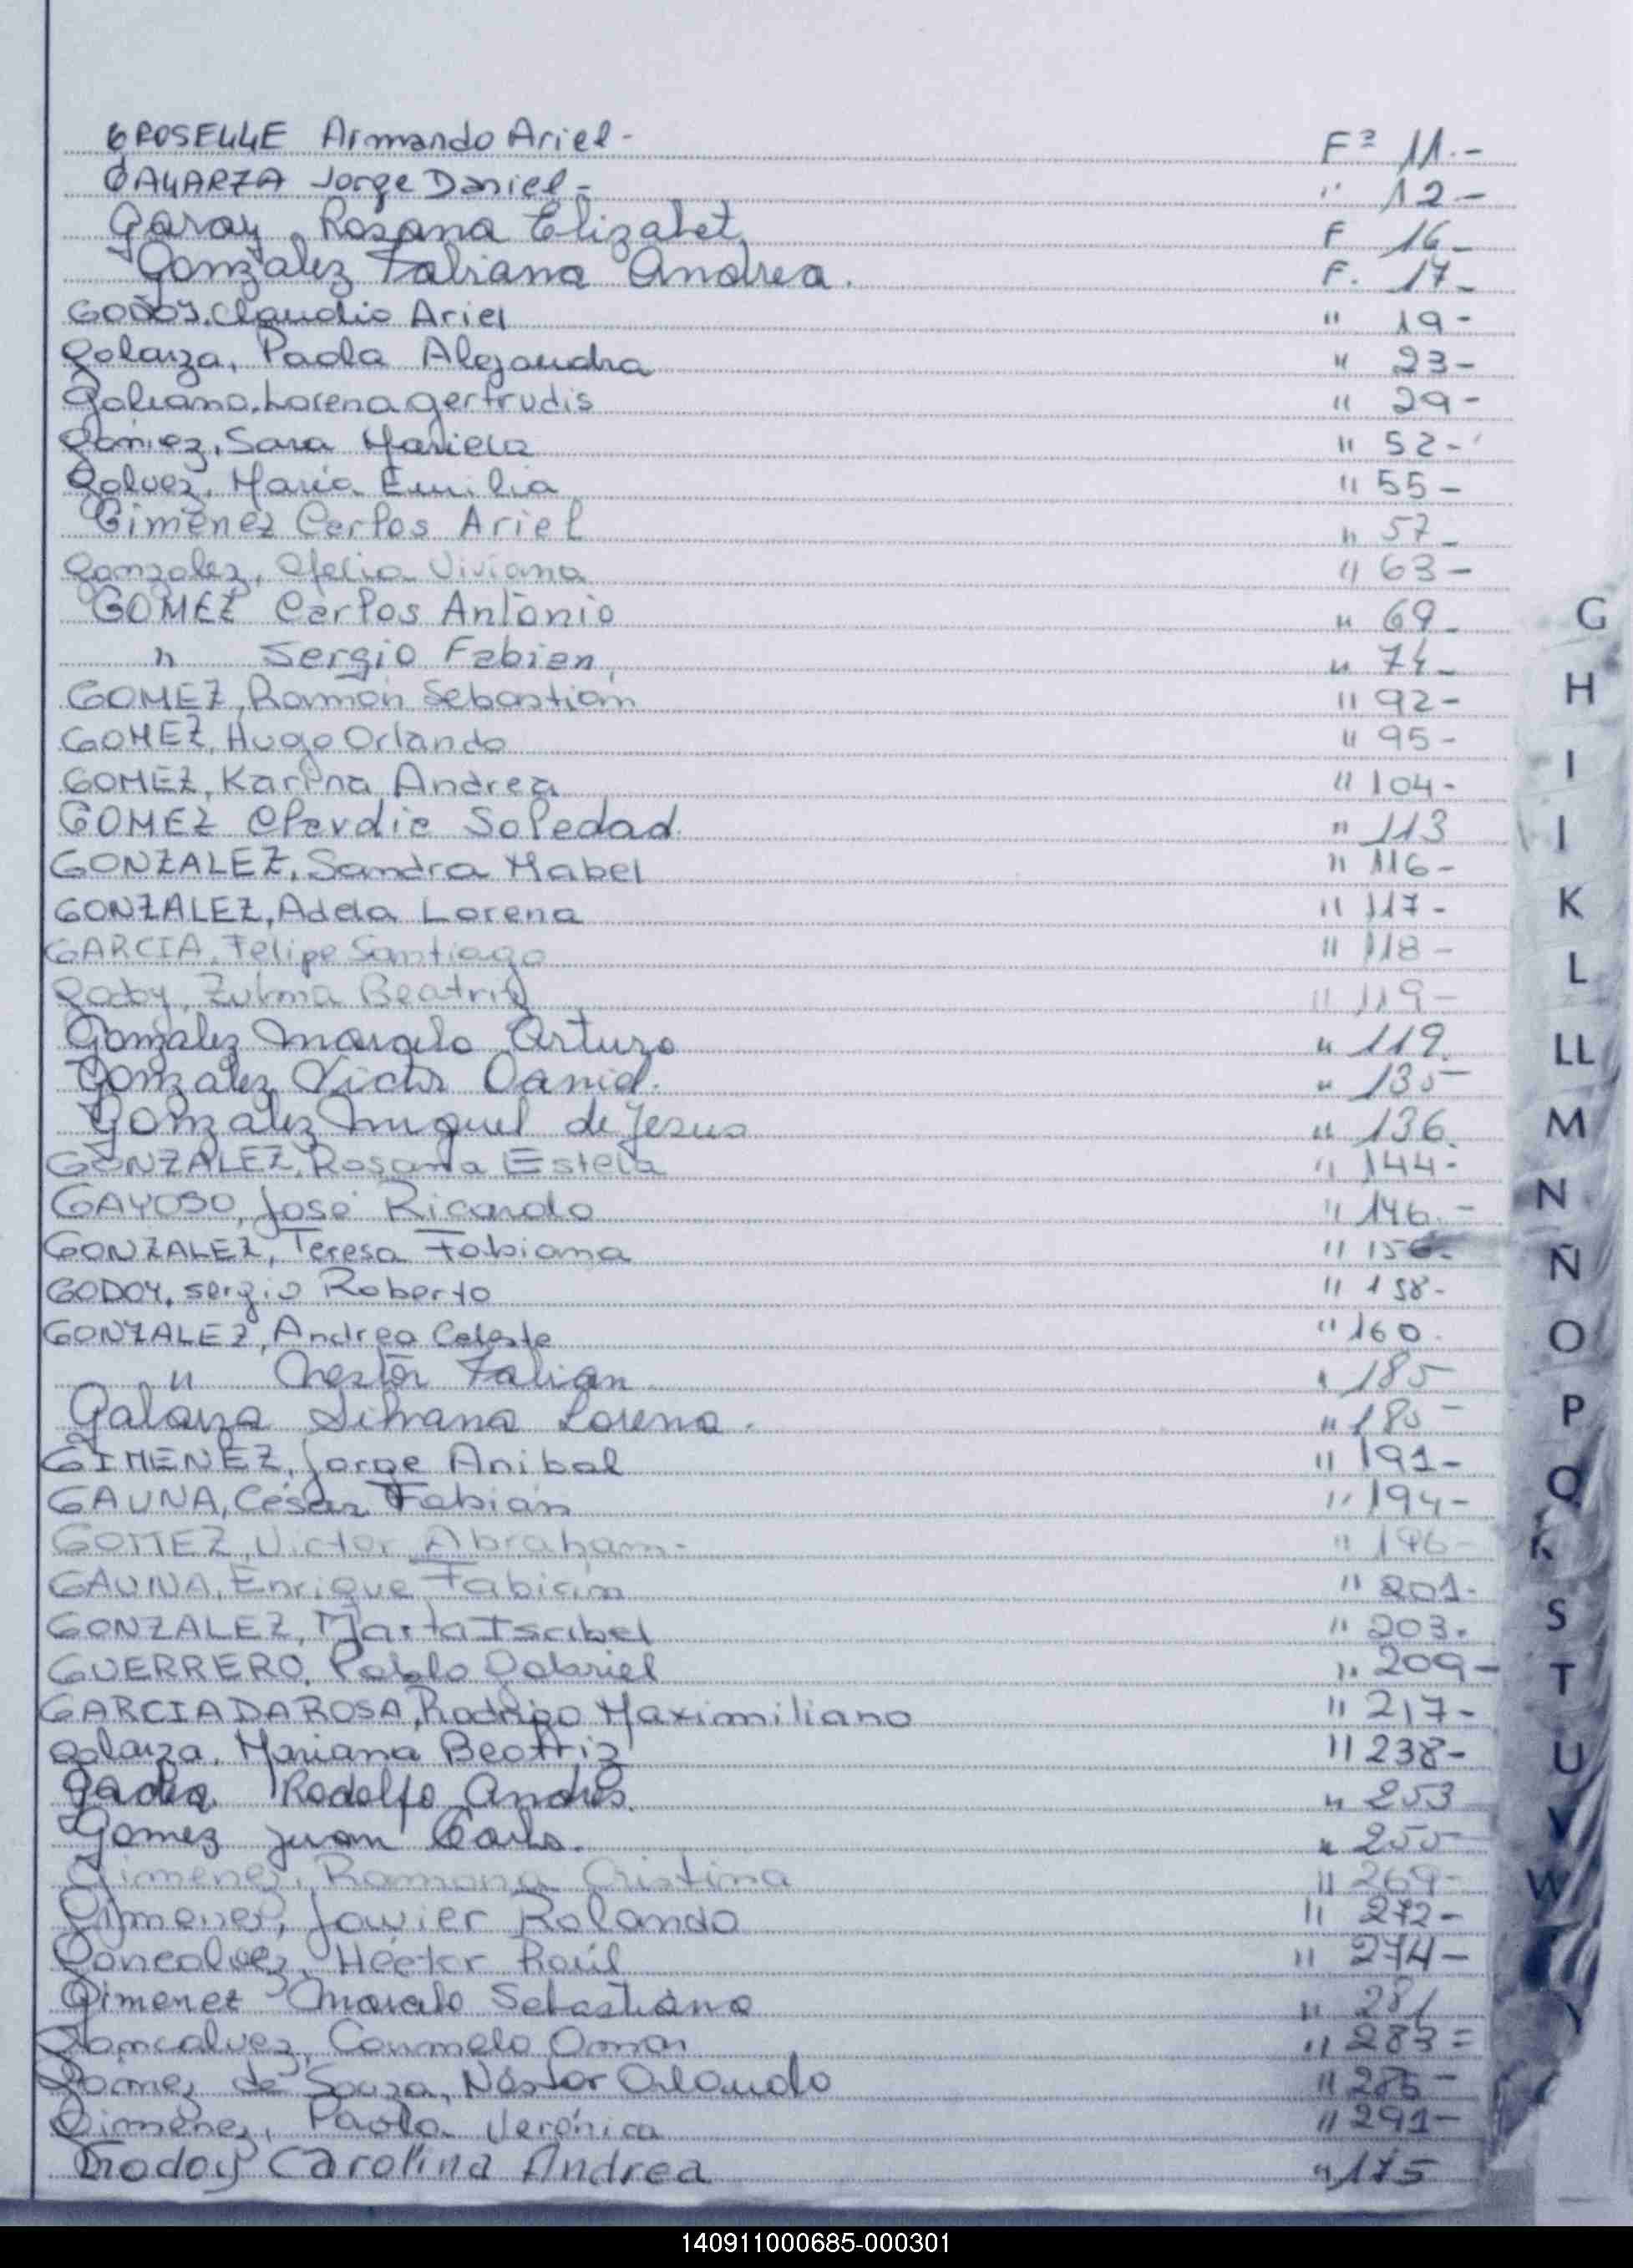 GROSELLE Armando Ariel- Fº 11.-
GALARZA Jorge Daniel- " 12-
Garay, Rosana Elizabet, F 16-
Gonzalez Fabiana Andrea. F. 17-
GODOY, Claudio Ariel " 19-
Galarza, Paola Alejandra " 23-
Galeano, Lorena Gertrudis " 29-
Gómez, Sara Mariela " 52-
Galvez, María Emilia " 55-
Gimenez Carlos Ariel " 57-
Gonzalez, Ofelia Viviana " 63-
GOMEZ Carlos Antonio " 69-
" Sergio Fabian, " 74-
GOMEZ, Ramón Sebastian " 92-
GOMEZ, Hugo Orlando " 95-
GOMEZ, Karina Andrea " 104-
GOMEZ Claudia Soledad. " 113
GONZALEZ, Sandra Mabel " 116-
GONZALEZ, Adela Lorena " 117-
GARCIA, Felipe Santiago " 118-
Godoy, Zulma Beatriz " 119-
Gonzalez Marcelo Arturo " 119.
Gonzalez Victor Daniel. " 135-
Gonzalez Miguel de Jesus " 136.
GONZALEZ, Rosana Estela " 144-
GAYOSO, José Ricardo " 146.-
GONZALEZ, Teresa Fabiana " 156-
GODOY, sergio Roberto " 158-
GONZALEZ, Andrea Celeste " 160.
" Nestor Fabian " 185-
Galarza Silvana Lorena. " 185-
GIMENEZ, Jorge Anibal " 191-
GAUNA, César Fabián " 194-
GOMEZ, Victor Abraham- " 196-
GAUNA, Enrique Fabián " 201-
GONZALEZ, Marta Isabel " 203.
GUERRERO, Pablo Gabriel " 209-
GARCIA DA ROSA, Rodrigo Maximiliano " 217-
Galarza, Mariana Beatriz " 238-
Rodolfo Andrés. " 253
Gomez Juan Carlos. " 255-
Gimenez, Ramona Cristina " 269-
Gimenez, Javier Rolando " 272-
Goncalvez, Héctor Raúl " 274-
Gimenez Marcelo Sebastiano " 281
Goncalvez, Carmelo Omar " 283=
Gomez de Souza, Néstor Orlando " 285-
Gimenez, Paola Verónica " 291-
Godoy Carolina Andrea " 175
G
H
I
I
K
L
LL
M
N
N
Ñ
O
P
Q
R
S
T
U
V
W
Y
140911000685-000301